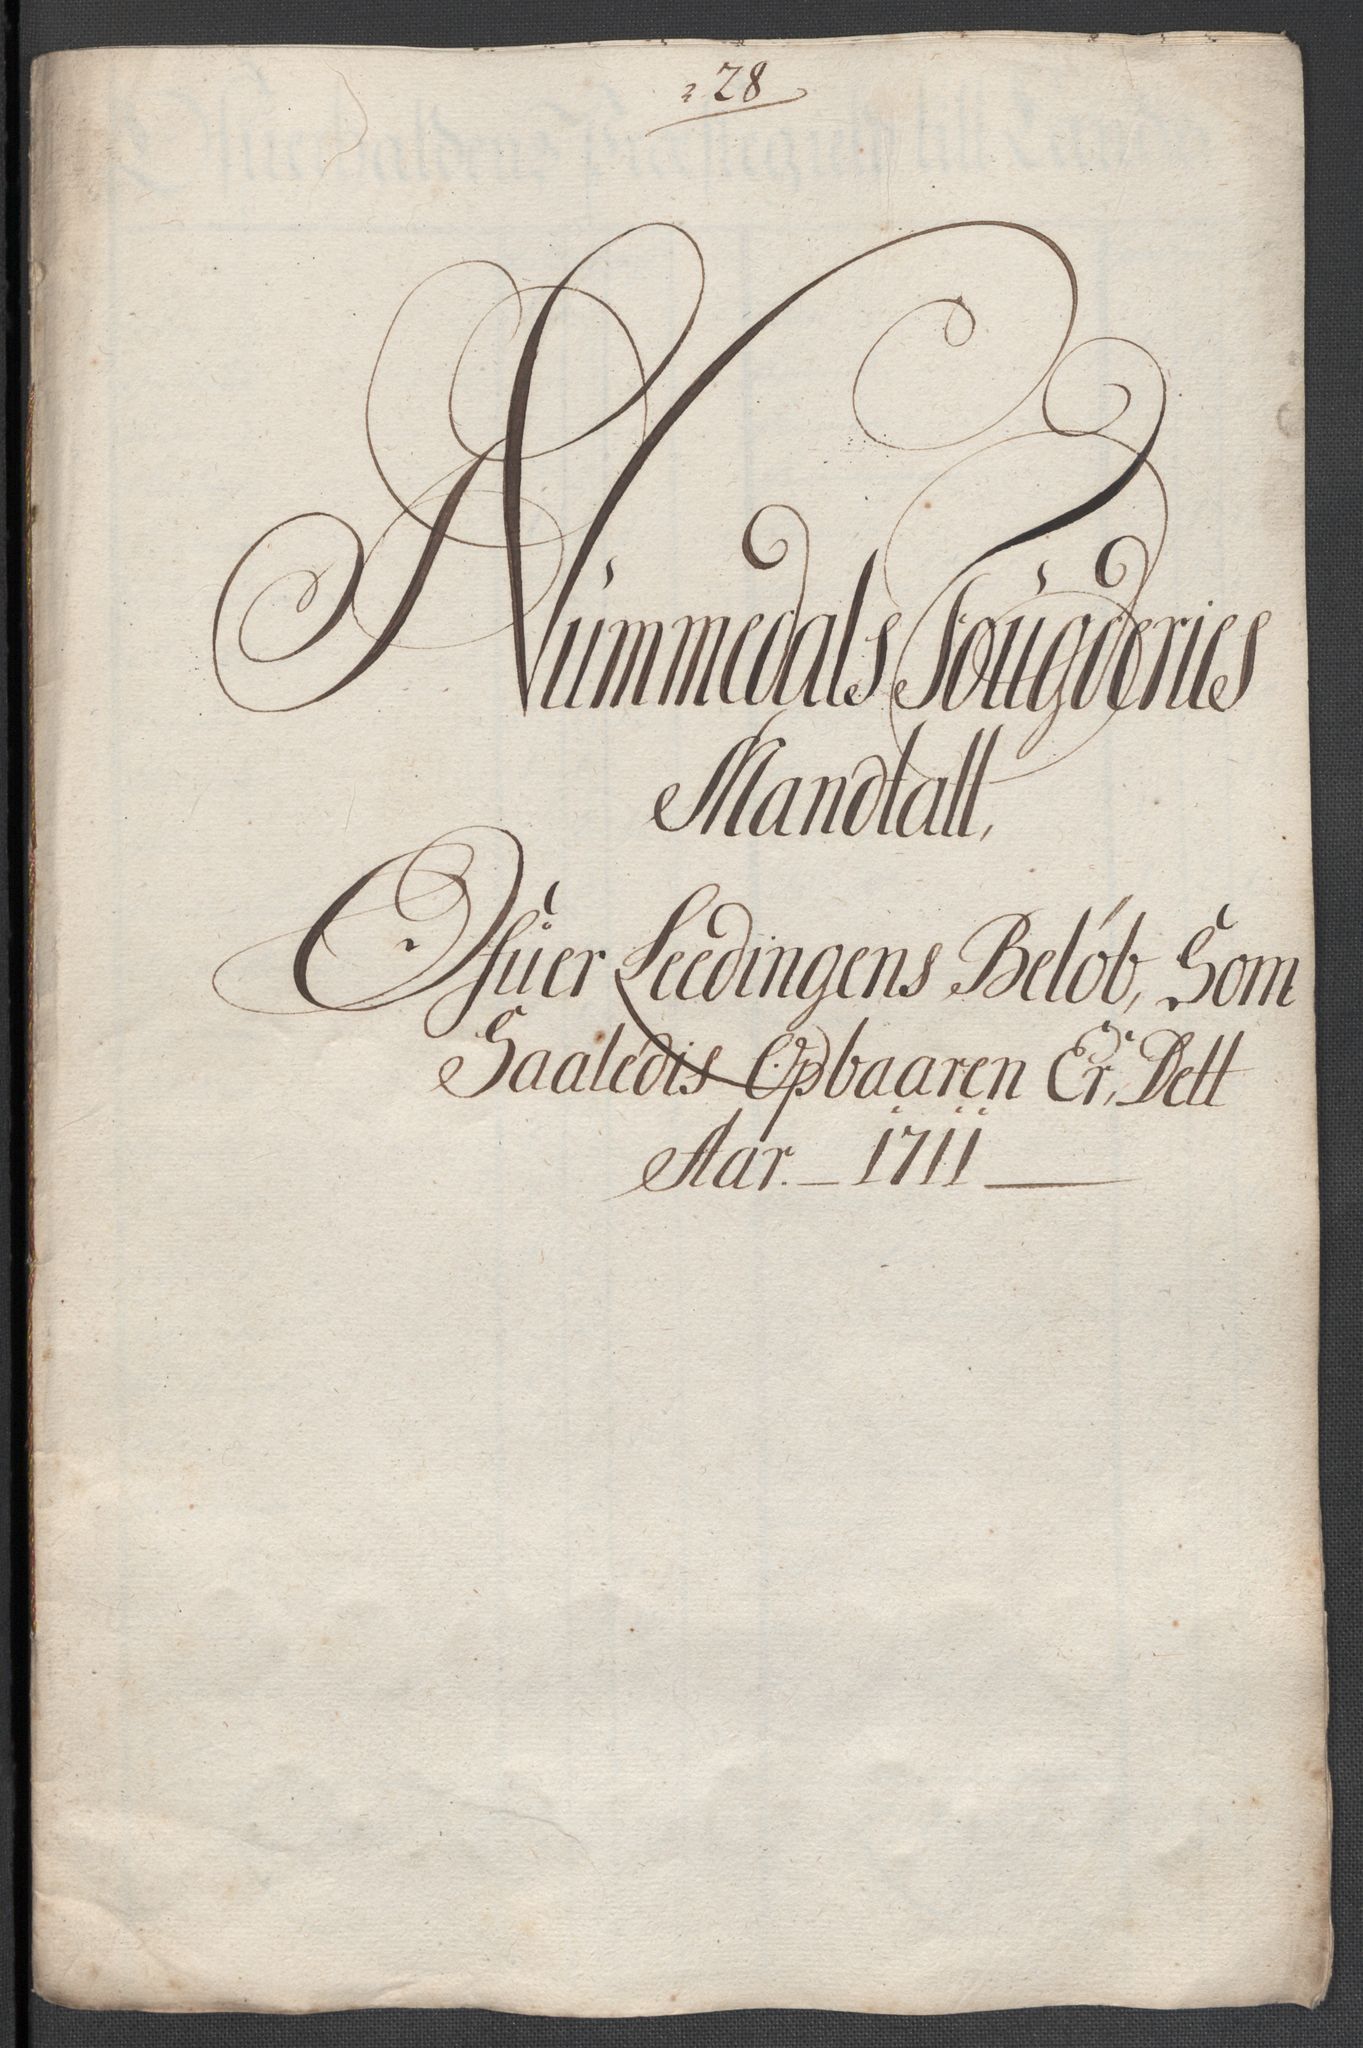 28
Nummedals Fougderies
Mandtall,
Ofuer Leedingens Beløb, Som
Saaledis Opbaaren Er, Dett
Aar. 1711